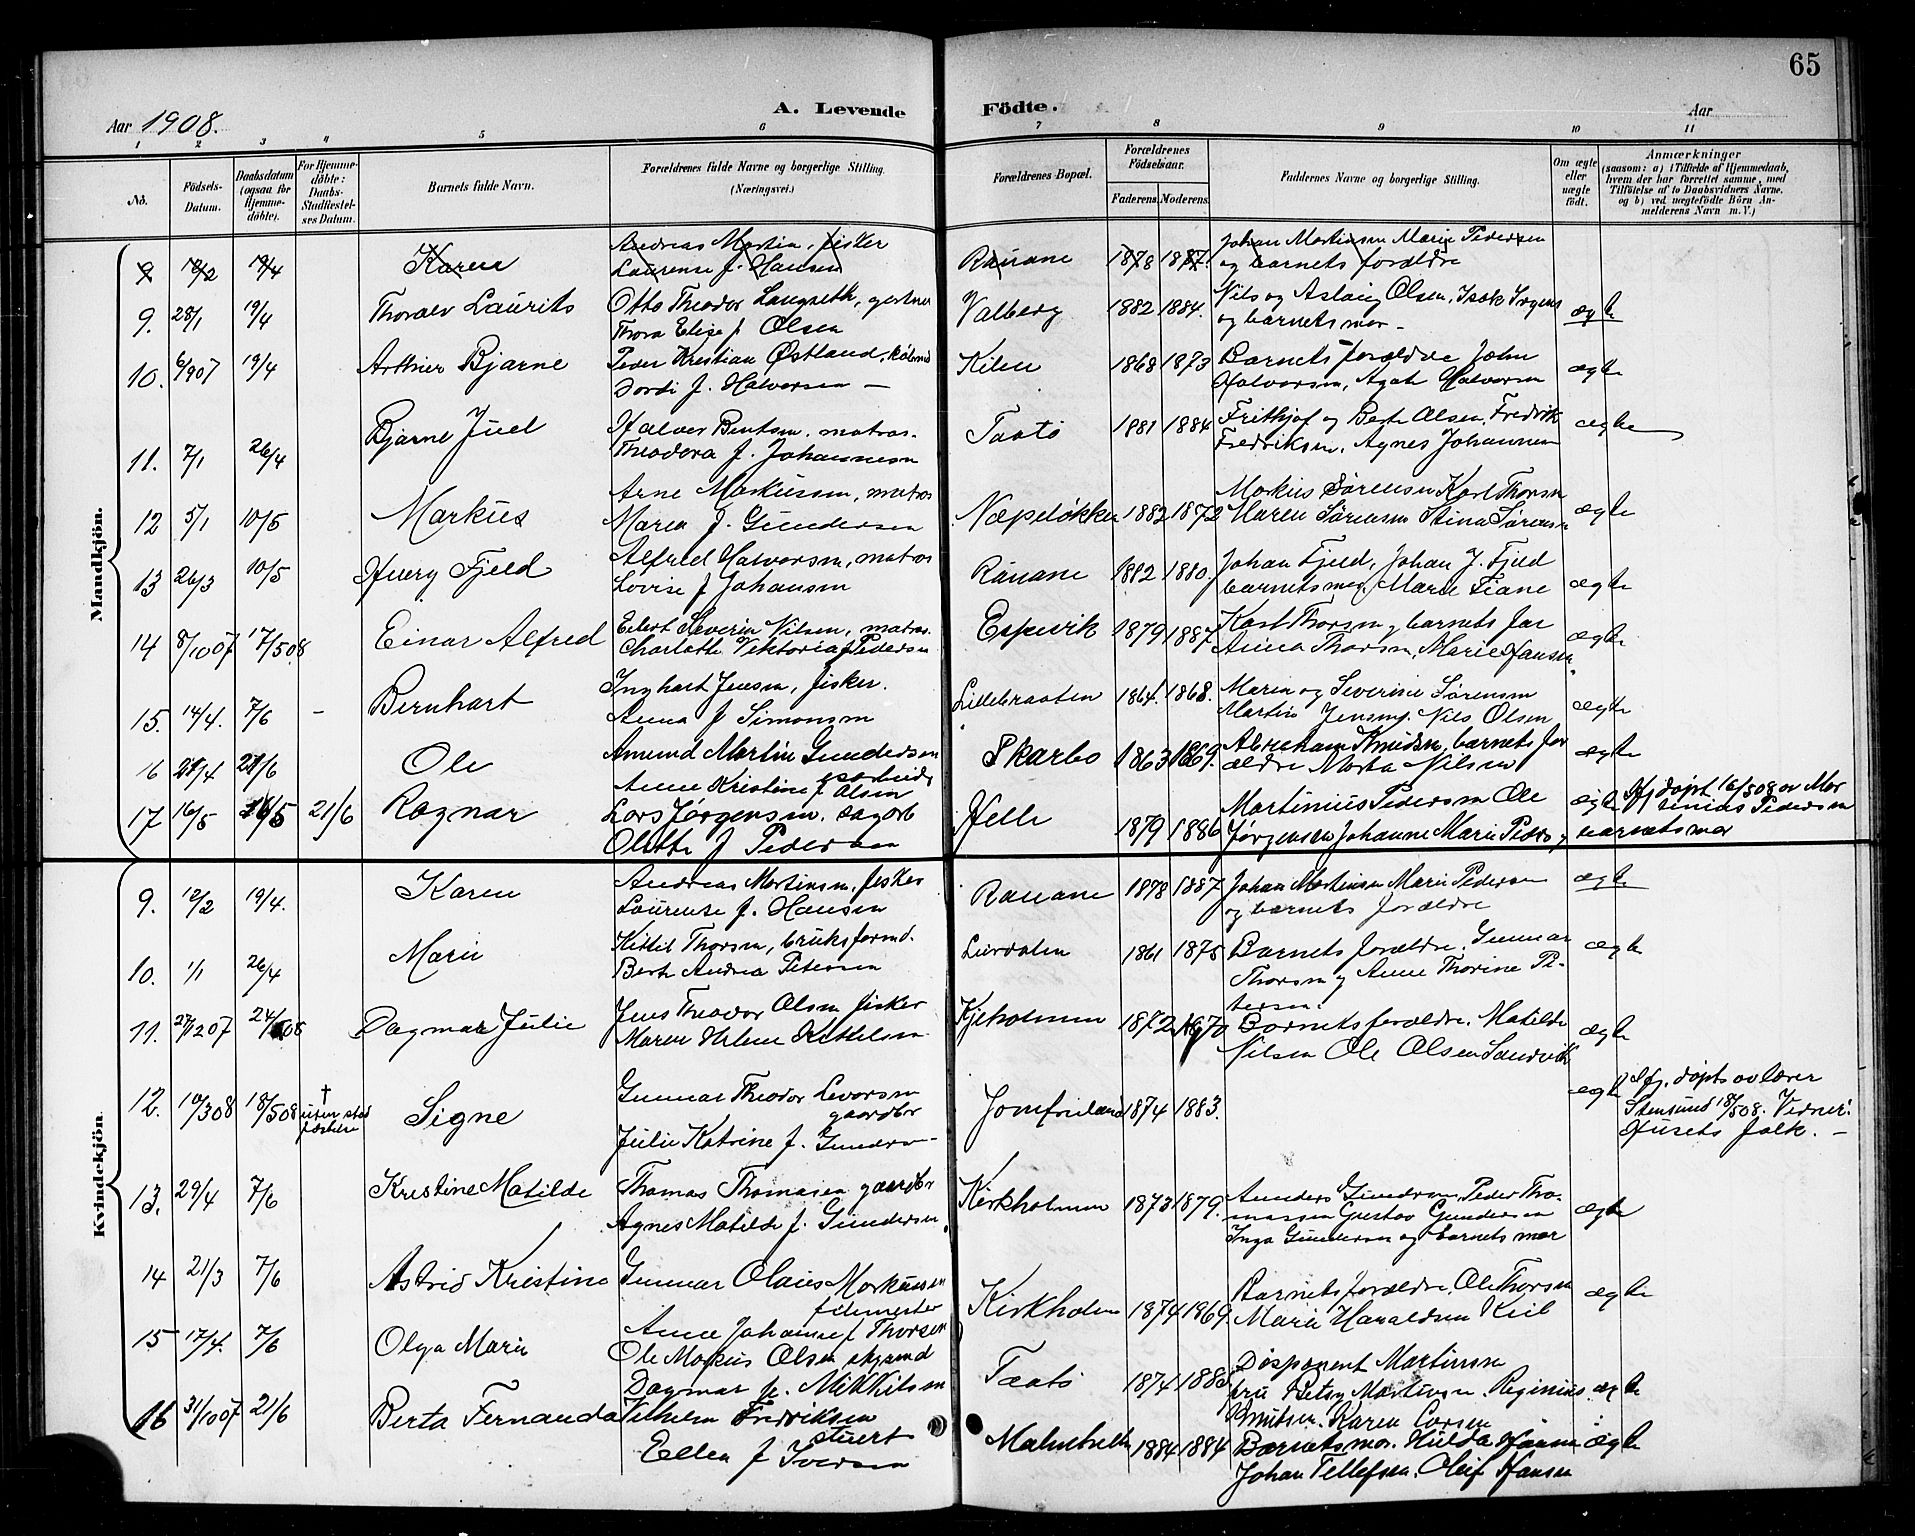 65
Aar 1908.
A. Levende
Födte.
Aar
1 2 3 4 5 6 7 8 9 10 11
No.
Födsels-Datum.
Daabsdatum (ogsaa for Hjemme-döbte).
For Hjemme-döbte: Daabs-Stadfæstel-ses Datum.
Barnets fulde Navn.
Forældrenes fulde Navne og borgerlige Stilling (Næringsvei.)
Forældrenes Bopæl.
Forældrenes Födselsaar.
Faderens. Moderens.
Faddernes Navne og borgerlige Stilling.
Om ægte eller uægte födt.
Anmærkninger
(saasom: a) i Tilfælde af Hjemmedaab, hvem der har forrettet samme, med Tilföielse af to Daabsvidners Navne, og b) ved uægtefödte Börn An-melderens Navn m. V.)
Mandkjön.
12/2 19/4 Karen Andreas Martin, fisker Rauane 1878 1887. Johan Martinsen Marie Pedersen
Laurense f. Hansen og barnets forældre
9. 28/1 19/4 Thoralv Laurits Otto Theodor Langseth, gartner Valberg 1882 1884. Nils og Aslaug Olsen, Isak ægte
Thora Elise f Olsen og barnets mor
10. 6/907 19/4 Arthur Bjarne Peder Kristian Østland Kilen 1868 1873 Barnets forældre John ægte
Jordi f. Halvorsen Halvorsen, Agate Halvorsen
11. 7/1 26/4 Bjarne Juel Halvor Bentsen, matros. Taatø 1881 1884 Frithjof og Berte Olsen, Fredrik ægte
Theodora f. Johannesen Fredriksen, Agnes Johannesen
12 5/1 10/5 Markus Arne Markussen, matros 1882 1872 Markus Sørensen Karl Thorsen ægte
Maren f. Gundersen Maren Sørensen Stina Sørensen
13 26/3 10/5 Henry Fjeld Alfred Halvorsen, matros Rauane 1882 1880. Johan Fjeld, Johan J. Fjeld ægte
Lovise f Johansen barnets mor, Marie Fiane
14 8/1007 17/508 Einar Alfred Edert Severin Nilsen, matros. Espevik 1879 1887 Karl Thorsen, barnets far ægte
Charlotte Viktoria f Pedersen Anna Thorsen, Marie Hansen
15. 14/4. 7/6 - Bernhart Inghart Jensen, fisker. Lillebraaten 1864 1868. Maren og Severine Sørensen ægte
Anna f Simonsen Martin Jensen, Nils Olsen
16 21/6 Ole Amund Martin Gundersen Skarbo 1863 1869. Abraham Knudsen, barnets for ægte
Anne Kristine f Olsen ældre Marta Nilsen
17 16/5 16/5 21/6 Ragnar Lars Jørgensen. sagarb Helle 1879 1886 Martinius Pedersen Ole ægte Hj døpt 16/508 av Mar
Olette f Pedersen Jørgensen Johanne Marie Peders, tinius Pedersen
barnets mor
Kvindekjön
9. 12/2 19/4. Karen Andreas Martinsen, fisker Rauane 1878 1887 Johan Martinsen Marie Pedersen ægte
Laurense f. Hansen og barnets forældre
10. 1/1 26/4 Marie Kittil Thorsen, bruksformd. Lurdalen 1861 1875 Barnets forældre, Gunnar ægte
Berte Andrea Petersen Thorsen og Anne Thorine Pe-
tersen.
11. 27/1207 Dagmar Julie Jens Theodor Olsen fisker Kjeholmen 1872 1870 Barnets forældre, Matilde ægte
Maren Helene Kittelsen Nilsen Ole Olsen Sandvik
12. 10/308 18/508 † uten stad fæstelse Signe Gunnar Theodor Levorsen gaardbr Jomfruland 1874 1883. ægte Hj. døpt av lærer
Julie Katrine f. Gunders Stensund 18/508. Vidner:
Husets folk. —
13. 29/4 7/6 Kristine Matilde Thomas Thomasen gaardbr Kirkholmen 1873 1879. Anders Gundersen, Peder Tho- ægte
Agnes Matilde f. Gundersen massen Gustav Gundersen
Inga Gundersen og barnets mor
14 21/3 7/6 Astrid Kristine Gunnar Olaus Markussen Kirkholm 1874 1869 Barnets forældre, Ole Thorsen ægte
Anne Johanne f Thorsen Marie Haraldsen Keil
15 17/4. 7/6 Olga Marie Ole Markus Olsen Taatø 1874 1885 Disponent Martinsen ægte
Dagmar f. Mikkelsen fru Betsy Martinsen Reginius
Knutsen. Karen Larsen
16 31/1007 21/6 Berta Fernanda Vilhelm Fredriksen stuert 1884 1884 Barnets mor. Hulda Hansen ægte
Ellen f Iversen Johan Tellefsen. Oleif Hansen